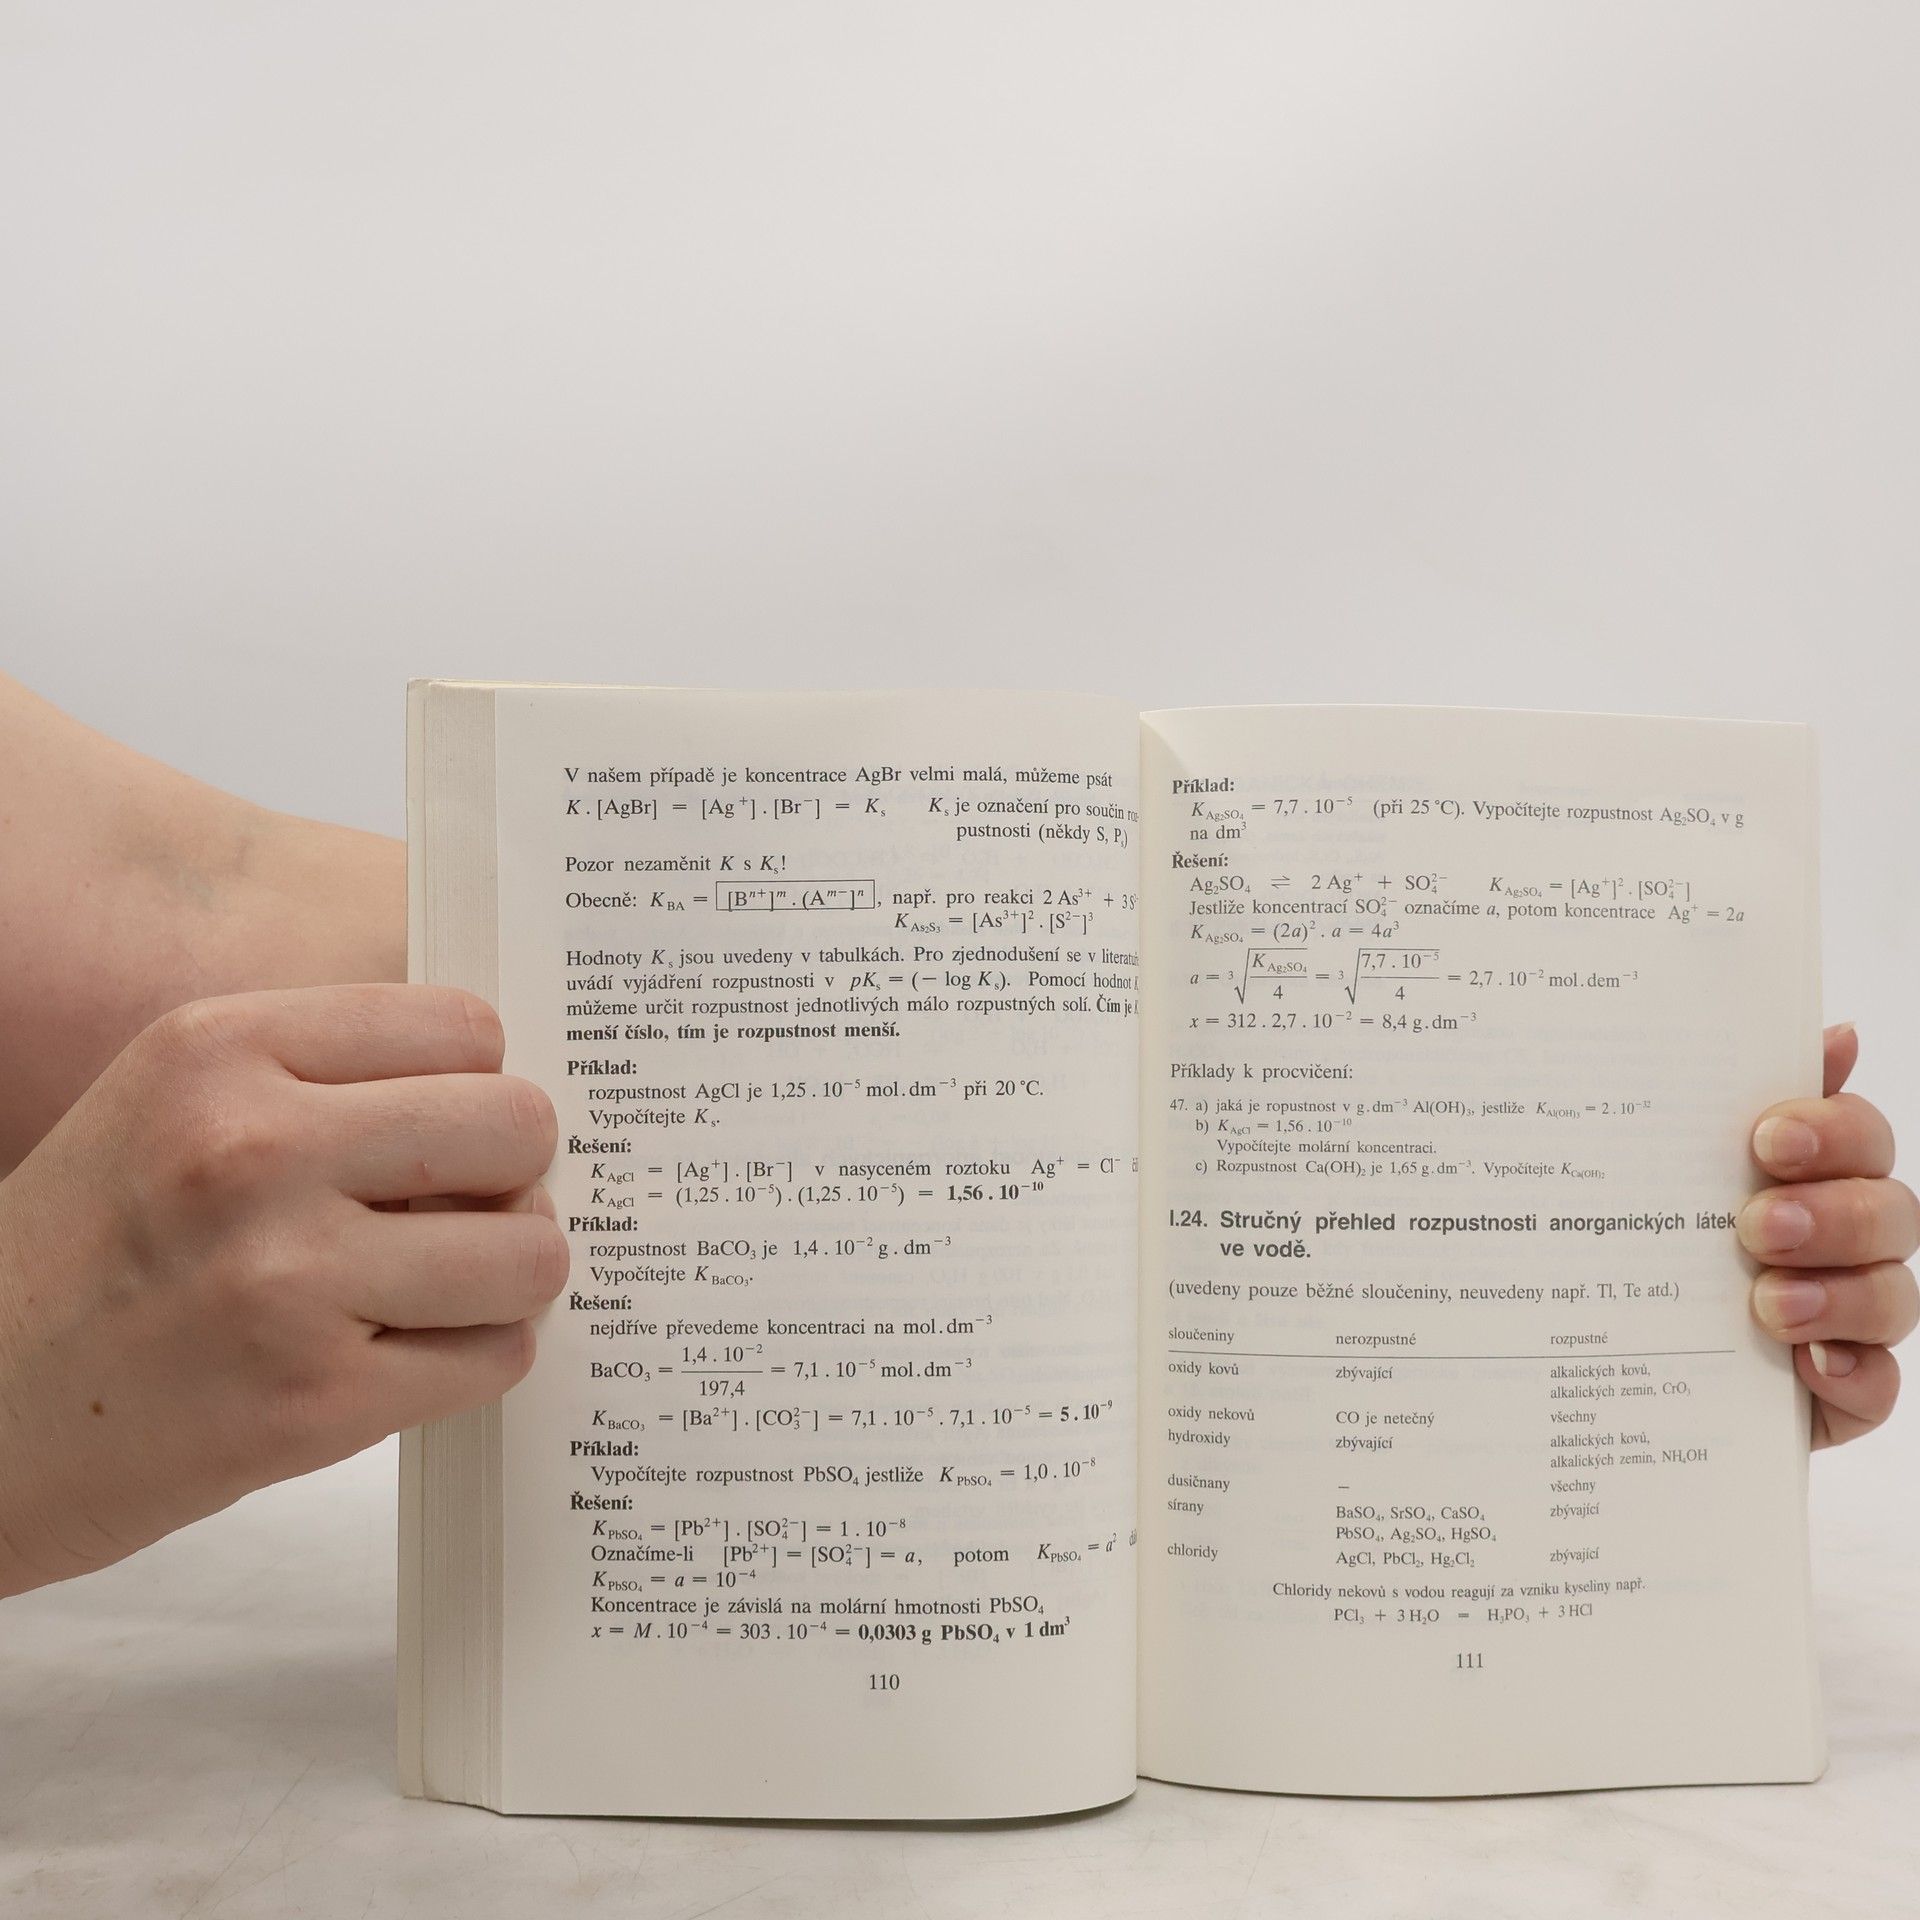 V našem případě je koncentrace AgBr velmi malá, můžeme psát
K . [AgBr] = [Ag⁺] . [Br⁻] = Kₛ Kₛ je označení pro součin roz-
pustnosti (někdy S, Pₛ)
Pozor nezaměnit K s Kₛ!
Obecně: K_BA = [Bⁿ⁺]ᵐ . (Aᵐ⁻]ⁿ, např. pro reakci 2 As³⁺ + 3S²⁻
K_As₂S₃ = [As³⁺]² . [S²⁻]³
Hodnoty Kₛ jsou uvedeny v tabulkách. Pro zjednodušení se v
uvádí vyjádření rozpustnosti v pKₛ = (− log Kₛ). Pomocí hodnot
můžeme určit rozpustnost jednotlivých málo rozpustných solí. Čím je
menší číslo, tím je rozpustnost menší.
Příklad:
rozpustnost AgCl je 1,25 . 10⁻⁵ mol.dm⁻³ při 20 °C.
Vypočítejte Kₛ.
Řešení:
K_AgCl = [Ag⁺] . [Br⁻] v nasyceném roztoku Ag⁺ = Cl⁻
K_AgCl = (1,25 . 10⁻⁵) . (1,25 . 10⁻⁵) = 1,56 . 10⁻¹⁰
Příklad:
rozpustnost BaCO₃ je 1,4 . 10⁻² g . dm⁻³
Vypočítejte K_BaCO₃.
Řešení:
nejdříve převedeme koncentraci na mol.dm⁻³
BaCO₃ = 1,4 . 10⁻² / 197,4 = 7,1 . 10⁻⁵ mol.dm⁻³
K_BaCO₃ = [Ba²⁺] . [CO₃²⁻] = 7,1 . 10⁻⁵ . 7,1 . 10⁻⁵ = 5 . 10⁻⁹
Příklad:
Vypočítejte rozpustnost PbSO₄ jestliže K_PbSO₄ = 1,0 . 10⁻⁸
Řešení:
K_PbSO₄ = [Pb²⁺] . [SO₄²⁻] = 1 . 10⁻⁸
Označíme-li [Pb²⁺] = [SO₄²⁻] = a, potom K_PbSO₄ = a²
K_PbSO₄ = a = 10⁻⁴
Koncentrace je závislá na molární hmotnosti PbSO₄
x = M . 10⁻⁴ = 303 . 10⁻⁴ = 0,0303 g PbSO₄ v 1 dm³
110
Příklad:
K_Ag₂SO₄ = 7,7 . 10⁻⁵ (při 25 °C). Vypočítejte rozpustnost Ag₂SO₄ v g
na dm³
Řešení:
Ag₂SO₄ ⇌ 2 Ag⁺ + SO₄²⁻ K_Ag₂SO₄ = [Ag⁺]² . [SO₄²⁻]
Jestliže koncentrací SO₄²⁻ označíme a, potom koncentrace Ag⁺ = 2a
K_Ag₂SO₄ = (2a)² . a = 4a³
a = ³√(K_Ag₂SO₄ / 4) = ³√(7,7 . 10⁻⁵ / 4) = 2,7 . 10⁻² mol.dem⁻³
x = 312 . 2,7 . 10⁻² = 8,4 g.dm⁻³
Příklady k procvičení:
47. a) jaká je ropustnost v g.dm⁻³ Al(OH)₃, jestliže K_Al(OH)₃ = 2 . 10⁻³²
b) K_AgCl = 1,56 . 10⁻¹⁰
Vypočítejte molární koncentraci.
c) Rozpustnost Ca(OH)₂ je 1,65 g.dm⁻³. Vypočítejte K_Ca(OH)₂
I.24. Stručný přehled rozpustnosti anorganických látek
ve vodě.
(uvedeny pouze běžné sloučeniny, neuvedeny např. Tl, Te atd.)
sloučeniny nerozpustné rozpustné
oxidy kovů zbývající alkalických kovů,
alkalických zemin, CrO₃
oxidy nekovů CO je netečný všechny
hydroxidy zbývající alkalických kovů,
alkalických zemin, NH₄OH
dusičnany — všechny
sírany BaSO₄, SrSO₄, CaSO₄ zbývající
PbSO₄, Ag₂SO₄, HgSO₄
chloridy AgCl, PbCl₂, Hg₂Cl₂ zbývající
Chloridy nekovů s vodou reagují za vzniku kyseliny např.
PCl₃ + 3 H₂O = H₃PO₃ + 3 HCl
111